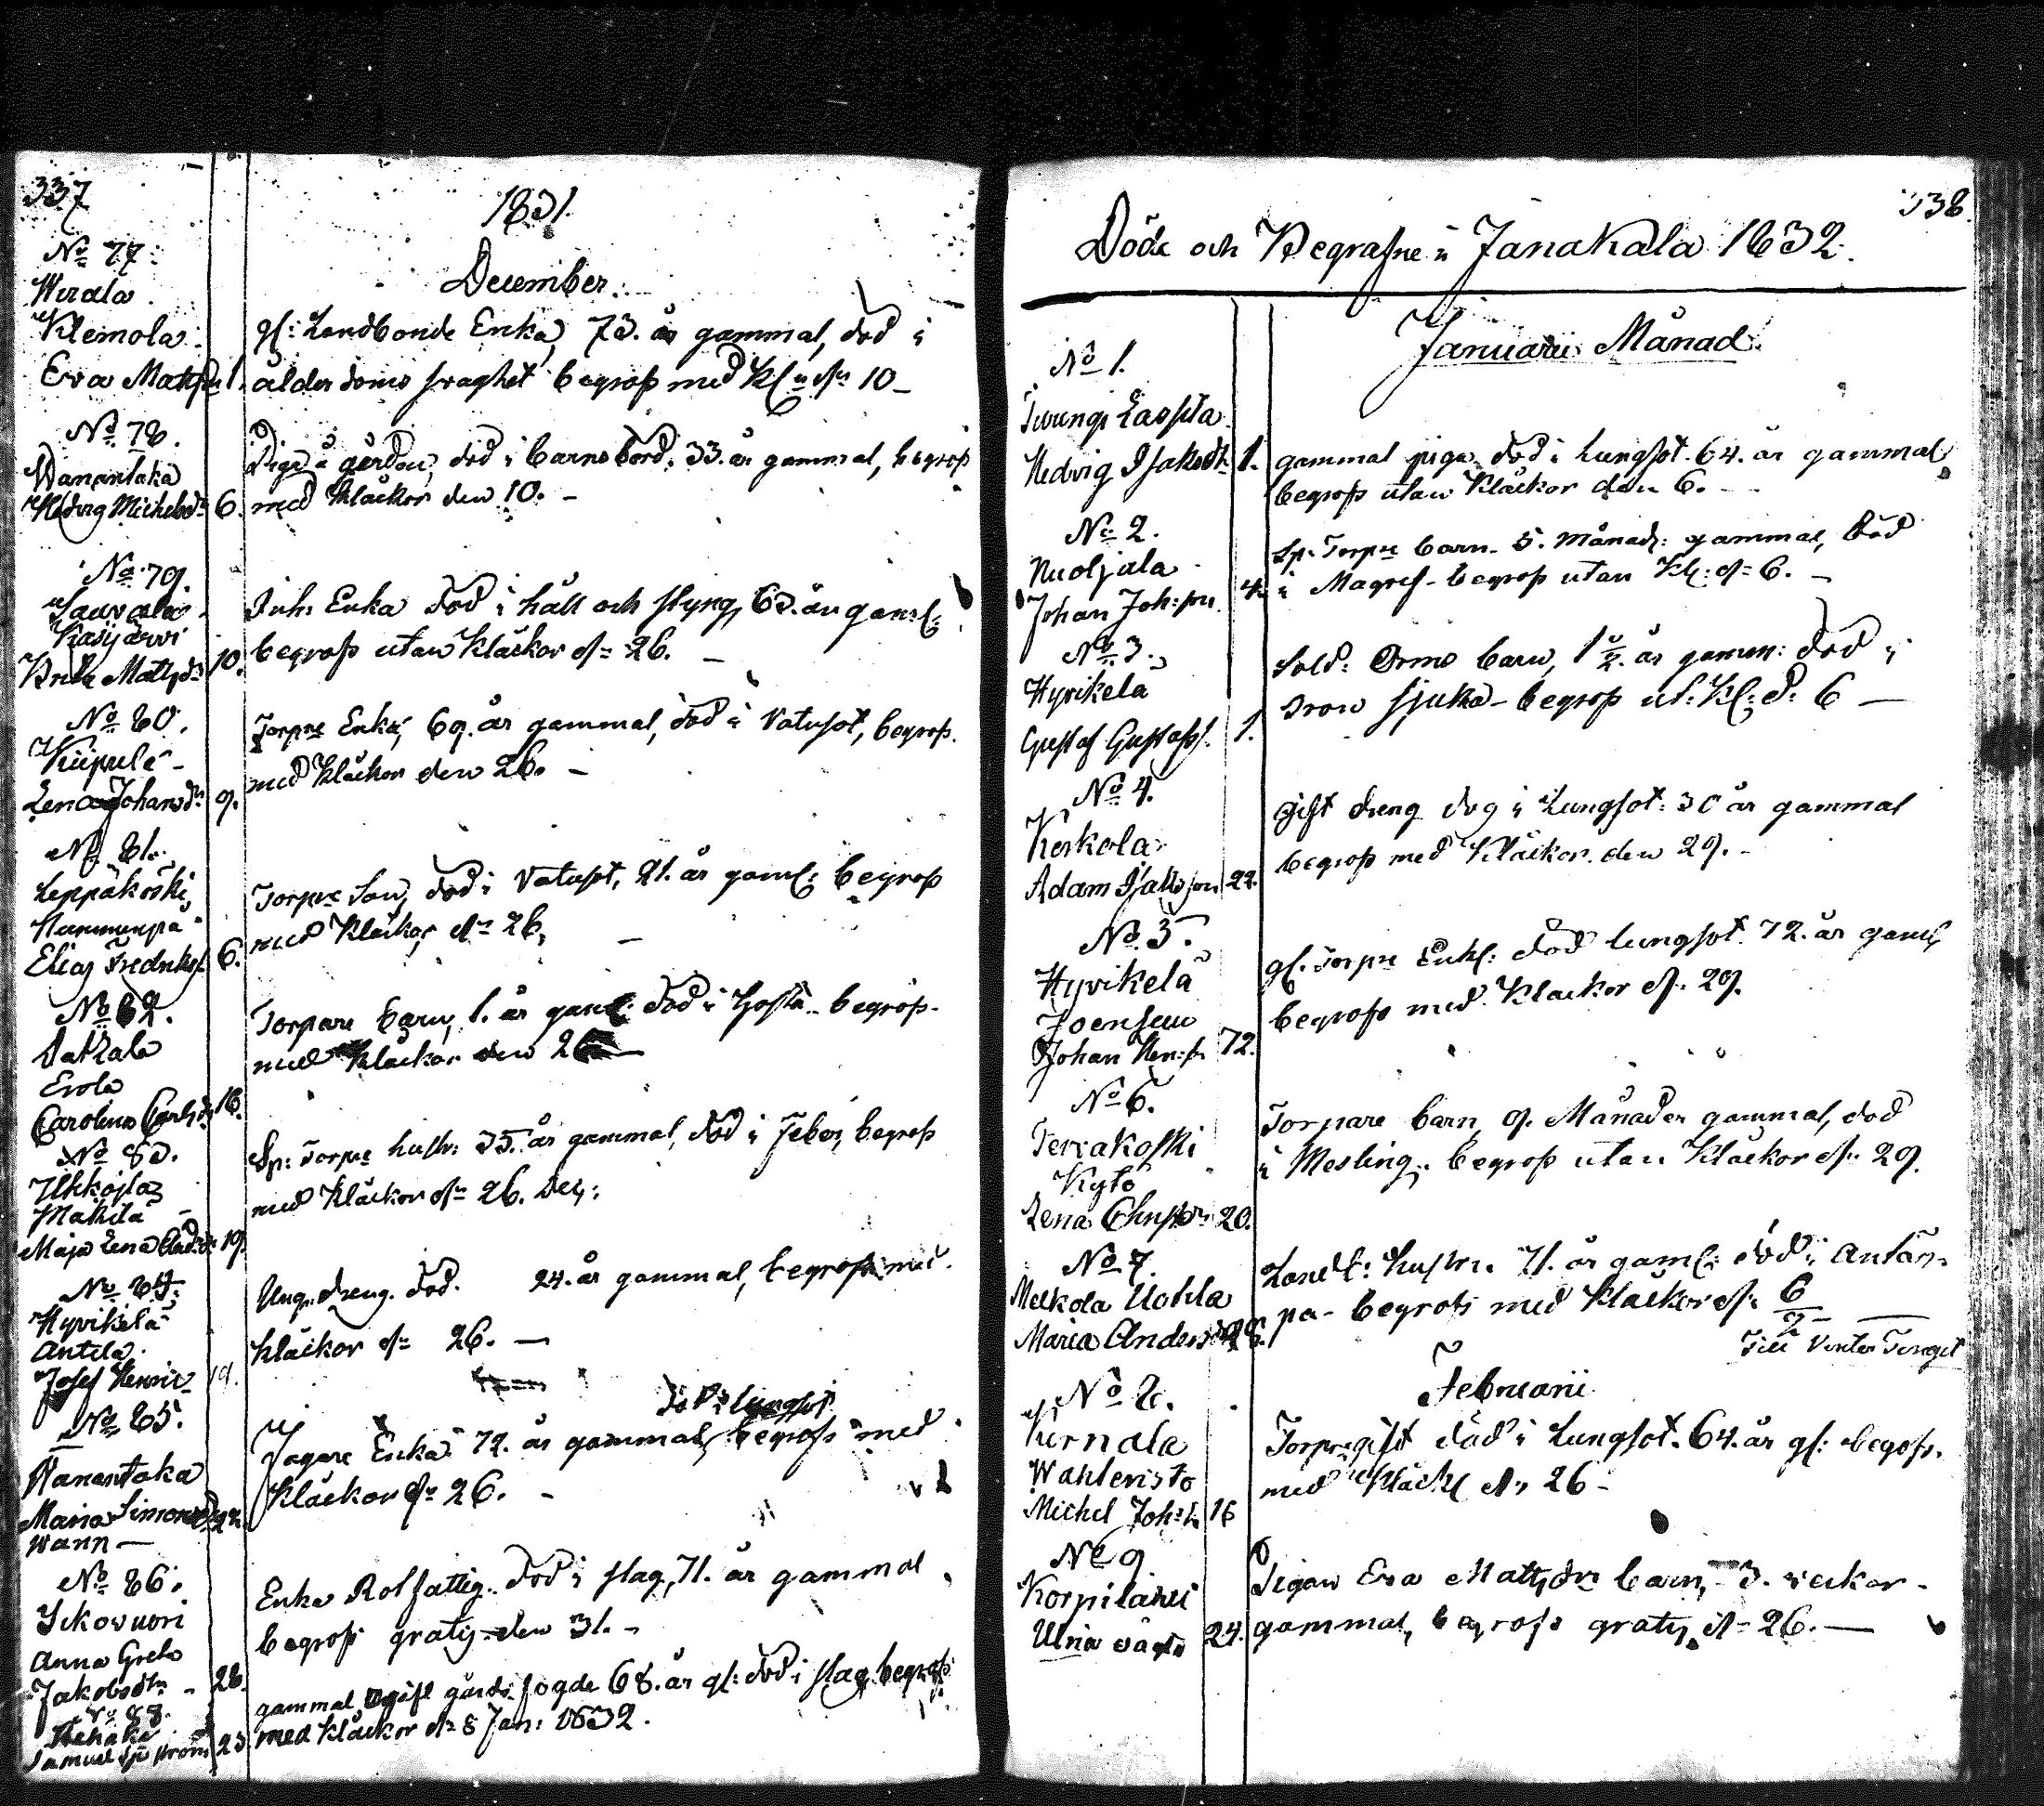 337
1831.
December.
No 77.
Wirala
Klemola
Eva Matsdr 1.
gl: Landbonde Enka, 73. år gammal, död i
ålderdoms svaghet begrofs med Kl: dn 10 -
No 78.
Wanantaka
Hedvig Michelsdr 6.
Piga å gården, död i barnsbörd, 33. år gammal, begrofs
med klåckor den 10. -
No 79.
Sauvala
Käsjärvi
Matsdr 10.
Inh: Enka död i håll och styng, 63. år gaml:
begrofs utan klåckor dn 26. -
No 80.
Kiipula -
Lena Johansdr 9.
Torpre Enka, 69. år gammal, död i Vatusot, begrofs.
med Klåckor den 26. -
No 81.
Leppäkoski,
Elias Fredriks: 6.
Torpre Son, död i Vatusot, 21. år gaml: begrofs
med Klåckor, dn 26, -
No 82.
Erola
Carolina Carlsdr 16.
Torpare barn, 1. år gaml: död i Hosta - begrofs.
med Klåckor den 26 -
No 83.
Mäkilä -
Maja Lena 19.
Sp: Torpre hustr: 35. år gammal, död i Feber, begrofs
med Klåckor dn 26. Dec:
No 84.
Hyvikälä
Antila.
Josef Henric 19.
Ung dreng. död. 24. år gammal, begrofs med.
klåckor dn 26. -
No 85.
Wanantaka
Maria Simonsd 22.
Wann -
död i lungsot
Jagare Enka 72. år gammal, begrofs med
Klåckor dn 26. -
No 86.
Ickovuori
Anna Greta
Jakobsdtr - 28.
Enka Rotfattig. död i slag, 71. år gammal
begrofs gratis den 31. -
No 88.
Samuel 23.
gammal gårds fogde 68. år gl: död i slag begrofs
med klåckor dn 8 Jan: 1832.
338.
Döde och Begrafne i Janakala 1832.
Januarii Månad.
No 1.
Turungi Lassila
Hedvig Isaksdtr 1.
gammal piga död i Lungsot. 64. år gammal
begrofs utan Klåckor den 6. -
No 2.
Nuoljala
Johan Joh:son 4.
Sp: Torpre barn - 5. Månad: gammal, död
i Magref - begrofs utan Kl: dn 6. -
No 3.
Hyvikelä
Gustaf Gustafss. 1.
Sold: Orms barn, 1 1/2. år gamm: död i
sjuka - begrofs ut: Kl: d: 6 -
No 4.
Kerkola
Adam Isaksson 22.
gift dreng dog i Lungsot: 30 år gammal
begrofs med Klåckor den 29. -
No. 5.
Hyvikelä
Joensuu
Johan Hen:s 72.
gl. Torpre Enkl: död lungsot. 72. år gaml,
begrofs med Klåckor d: 29.
No 6.
Tervakoski
Kytö
Lena Christ: 20.
Torpare barn, 9. Månader gammal, död
i Mesling, begrofs utan Klåckor dn 29.
No 7.
Melkola Uotila
Maria Anders
Landb: hustru. 71. år gaml: död i Antän-
pa - begrofs med Klåckor d: 6/2
Till Vinter Tinget
Februarii
No 8.
Kernala
Wähteristo
Michel Joh:s 16
Torpre gift död i Lungsot. 64. år gl: begofs.
med Kläck dn 26 -
No 9
Korpilahti
Ulrica oägta 24.
Pigan Eva Matsdr barn, 3. veckor -
gammal, begrofs gratis, d= 26. -